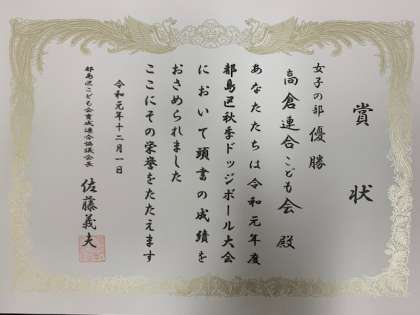 賞状
女子の部 優勝
高倉連合こども会 殿
あなたたちは令和元年度
都島区秋季ドッジボール大会
において頭書の成績を
おさめられました
ここにその栄誉をたたえます
令和元年十二月一日
都島区こども会育成連合協議会長
佐藤義夫